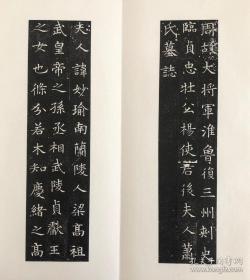 周故大將軍淮魯復三州刺史
臨貞忠壯公楊使君後夫人蕭
氏墓誌
夫人諱妙瑜南蘭陵人梁高祖
武皇帝之孫丞相武陵貞獻王
之女也條分若木知慶緒之高